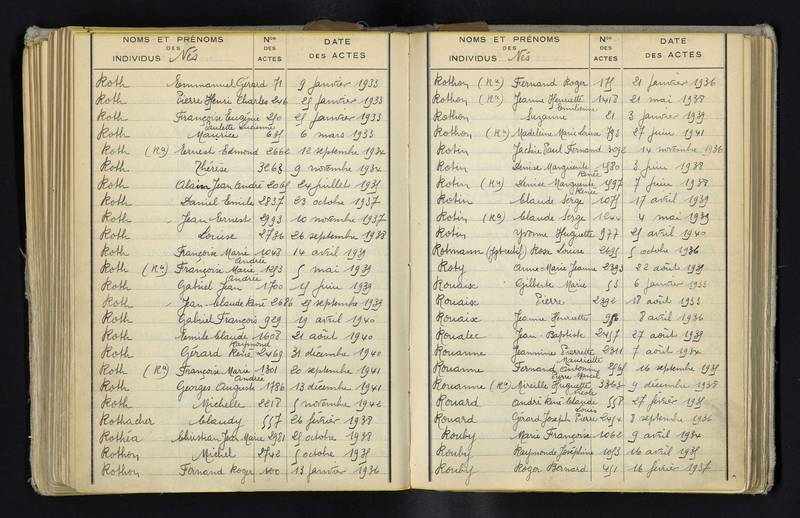 NOMS ET PRÉNOMS
DES
INDIVIDUS Nés
Nos
DES
ACTES
DATE
DES ACTES
Roth Emmanuel Gérard 71 9 janvier 1933
Roth Pierre Henri Charles 246 25 janvier 1933
Roth Françoise Eugénie 250 25 janvier 1933
Paulette Lucienne
Roth Maurice 635 6 mars 1933
Roth (Rn) Ernest Edmond 2662 12 septembre 1934
Roth Thérèse 3263 9 novembre 1934
Roth Alain Jean André 2065 24 juillet 1935
Roth Daniel Emile 2837 23 octobre 1937
Roth Jean Ernest 2993 10 novembre 1937
Roth Louise 2786 26 septembre 1938
Roth Françoise Marie 1048 14 avril 1939
Andrée
Roth (Rn) Françoise Marie 1253 5 mai 1939
Andrée
Roth Gabriel Jean 1700 15 juin 1939
Roth Jean-Claude René 2686 25 septembre 1939
Roth Gabriel François 929 19 avril 1940
Roth Emile Claude 1608 21 août 1940
Raymond
Roth Gérard René 2469 31 décembre 1940
Roth (Rn) Françoise Marie 1301 20 septembre 1941
Andrée
Roth Georges Auguste 1786 13 décembre 1941
Roth Michelle 2218 5 novembre 1942
Rothacher Claudy 557 26 février 1938
Rothéa Christian Jean Marie 2981 25 octobre 1938
Rothon Michel 2742 5 octobre 1935
Rothon Fernand Roger 100 13 janvier 1936
NOMS ET PRÉNOMS
DES
INDIVIDUS Nés
Nos
DES
ACTES
DATE
DES ACTES
Rothon (Rn) Fernand Roger 175 21 janvier 1936
Rothon (Rn) Jeanne Henriette 1418 21 mai 1938
Emilienne
Rothon Suzanne 21 3 janvier 1939
Rothon (Rn) Madeleine Marie Louise 793 27 juin 1941
Rotin Jackie Paul Fernand 3092 14 novembre 1936
Rotin Denise Marguerite 1580 3 juin 1938
Renée
Rotin (Rn) Denise Marguerite 1597 7 juin 1938
Renée
Rotin Claude Serge 1075 17 avril 1939
Rotin (Rn) Claude Serge 1244 4 mai 1939
Rotin Yvonne Huguette 977 25 avril 1940
Rotmann Rose Louise 2695 5 octobre 1936
Roty Anne-Marie Jeanne 2393 22 août 1939
Rouaix Gilberte Marie 53 6 janvier 1933
Rouaix Pierre 2392 18 août 1933
Rouaix Jeanne Henriette 8 avril 1936
Roualec Jean Baptiste 2457 27 août 1939
Rouanne Jeannine Pierrette 2311 7 août 1934
Mauricette
Rouanne Fernand Antonin 2565 16 septembre 1935
Pierre Marcel
Rouanne (Rn) Mireille Huguette 3363 9 décembre 1938
Nicole
Rouard André René Claude 558 27 février 1935
Louis
Rouard Gérard Joseph Pierre 2454 8 septembre 1936
Rouby Marie Françoise 1062 9 avril 1934
Rouby Raymonde Joséphine 1053 16 avril 1935
Rouby Roger Bernard 451 16 février 1937